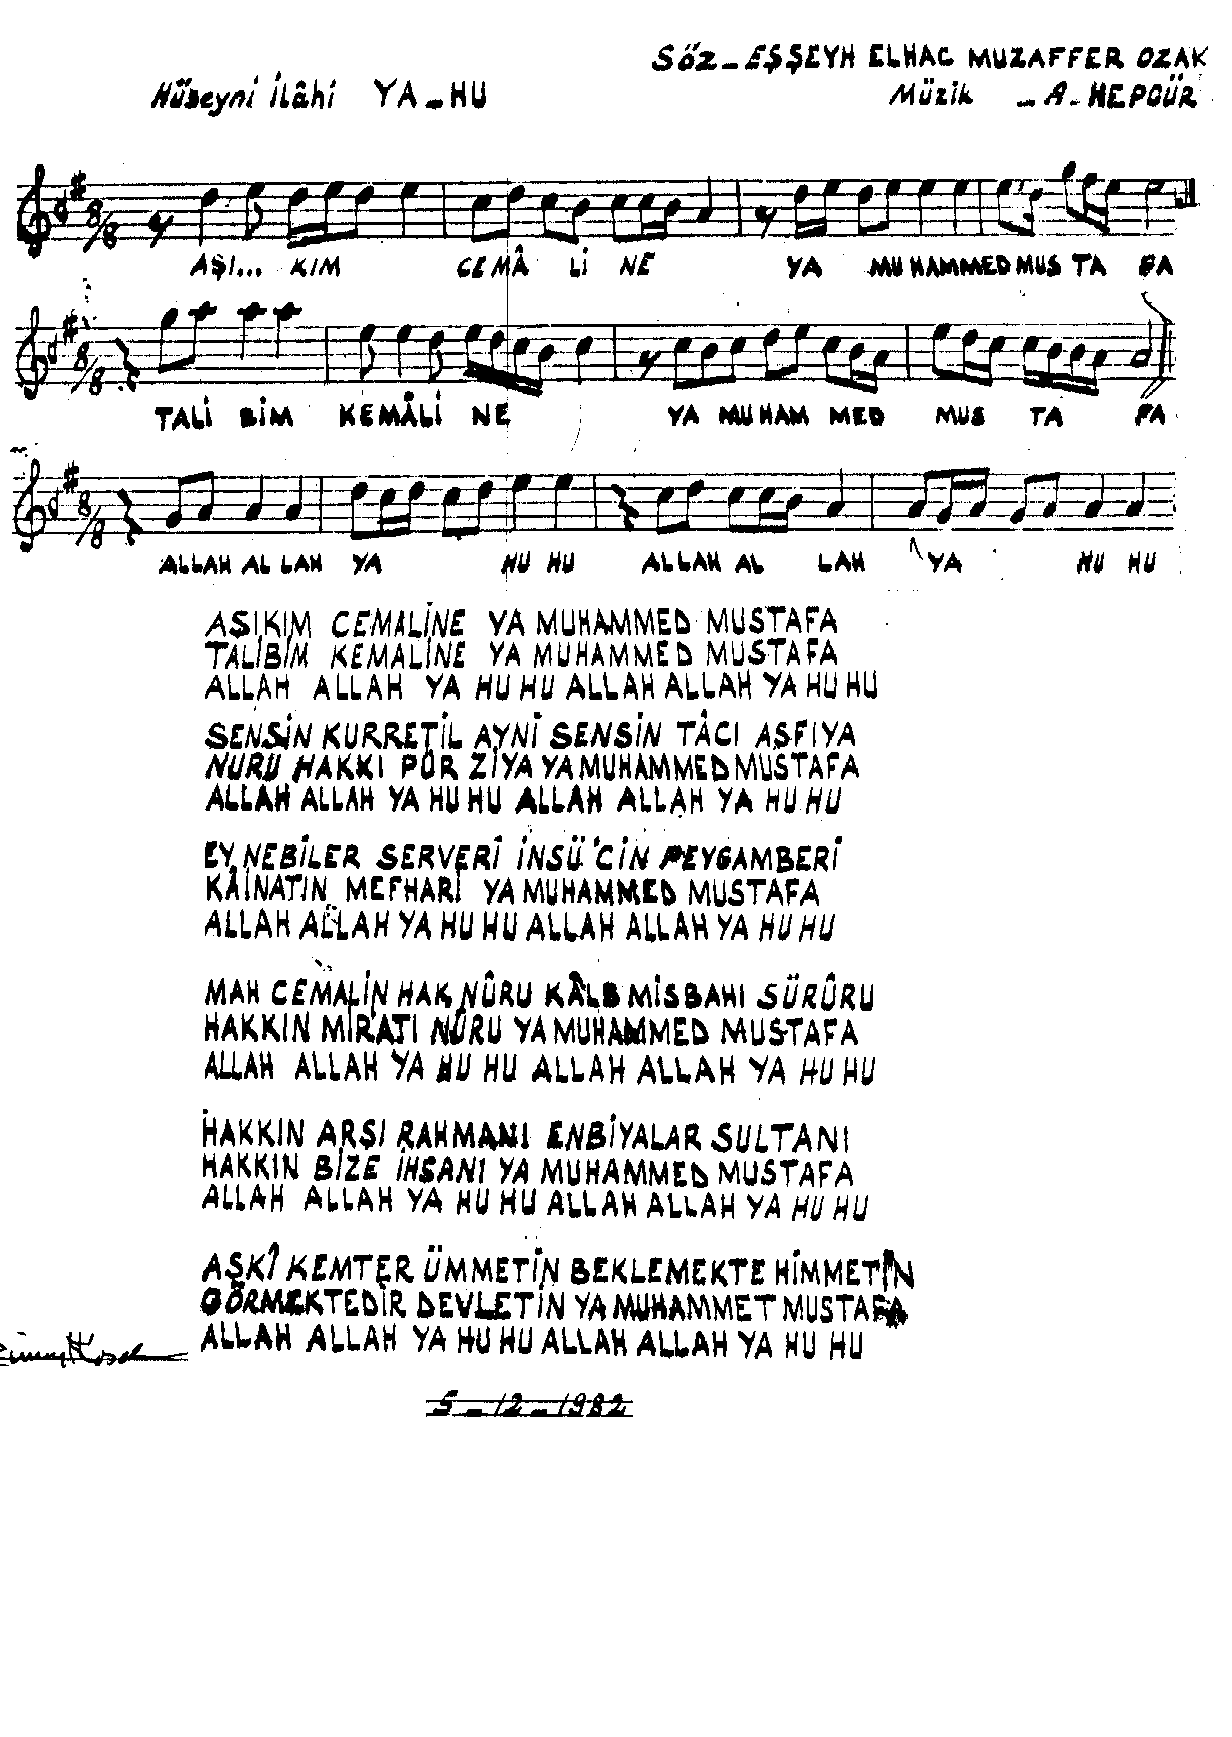 SÖZ - EŞŞEYH ELHAC MUZAFFER OZAK
Hüseyni İlâhi YA - HU
Müzik - A - HEPGÜR
8/8
AŞI... KIM CEMÂ Lİ NE YA MUHAMMED MUS TA FA
8/8
TALİ BİM KEMÂLİ NE YA MUHAM MED MUS TA FA
8/8
ALLAH AL LAH YA HU HU ALLAH AL LAH YA HU HU
AŞIKIM CEMALİNE YA MUHAMMED MUSTAFA
TALİBİM KEMALİNE YA MUHAMMED MUSTAFA
ALLAH ALLAH YA HU HU ALLAH ALLAH YA HU HU
SENSİN KURRETİL AYNİ SENSİN TÂCI ASFIYA
NURU HAKKI PÜR ZİYA YA MUHAMMED MUSTAFA
ALLAH ALLAH YA HU HU ALLAH ALLAH YA HU HU
EY NEBİLER SERVERÎ İNSÜ'CİN PEYGAMBERİ
KÂİNATIN MEFHARİ YA MUHAMMED MUSTAFA
ALLAH ALLAH YA HU HU ALLAH ALLAH YA HU HU
MAH CEMALİN HAK NÛRU KÂLB MİSBAHI SÜRÛRU
HAKKIN MİRATI NÛRU YA MUHAMMED MUSTAFA
ALLAH ALLAH YA HU HU ALLAH ALLAH YA HU HU
HAKKIN ARŞI RAHMANI ENBİYALAR SULTANI
HAKKIN BİZE İHSANI YA MUHAMMED MUSTAFA
ALLAH ALLAH YA HU HU ALLAH ALLAH YA HU HU
AŞKÎ KEMTER ÜMMETİN BEKLEMEKTE HİMMETİN
GÖRMEKTEDİR DEVLETİN YA MUHAMMET MUSTAFA
ALLAH ALLAH YA HU HU ALLAH ALLAH YA HU HU
5 - 12 - 1982